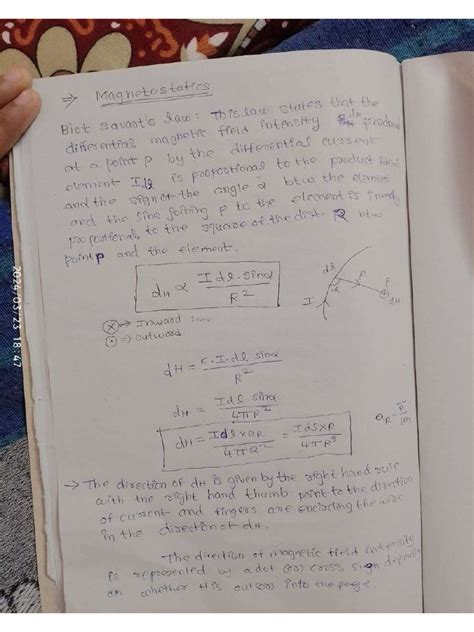 ⇒ Magnetostatics
Biot savart's law: This law states that the
differential magnetic field intensity dH produce
at a point P by the differential current
element Idl is proportional to the product Idl
and the sign of the angle α btw the element
and the line joining P to the element is inversly
proportional to the square of the dist. R btw
point P and the element.
dH α Idl.sinα / R²
dl
α
R
P
I
dH
ⓧ→ Inward
⊙→ outward
dH = K.I.dl sinα / R²
dH = Idl sinα / 4πR²
dH = Idl×aR / 4πR² = Idl×R / 4πR³
aR = R̄ / |R|
→ The direction of dH is given by the right hand rule
with the right hand thumb point to the direction
of current and fingers are encircling the wire
in the direction of dH.
The direction of magnetic field intensity
is represented by a dot (or) cross sign depending
on whether H is out (or) into the page.
2024/03/23 18:47